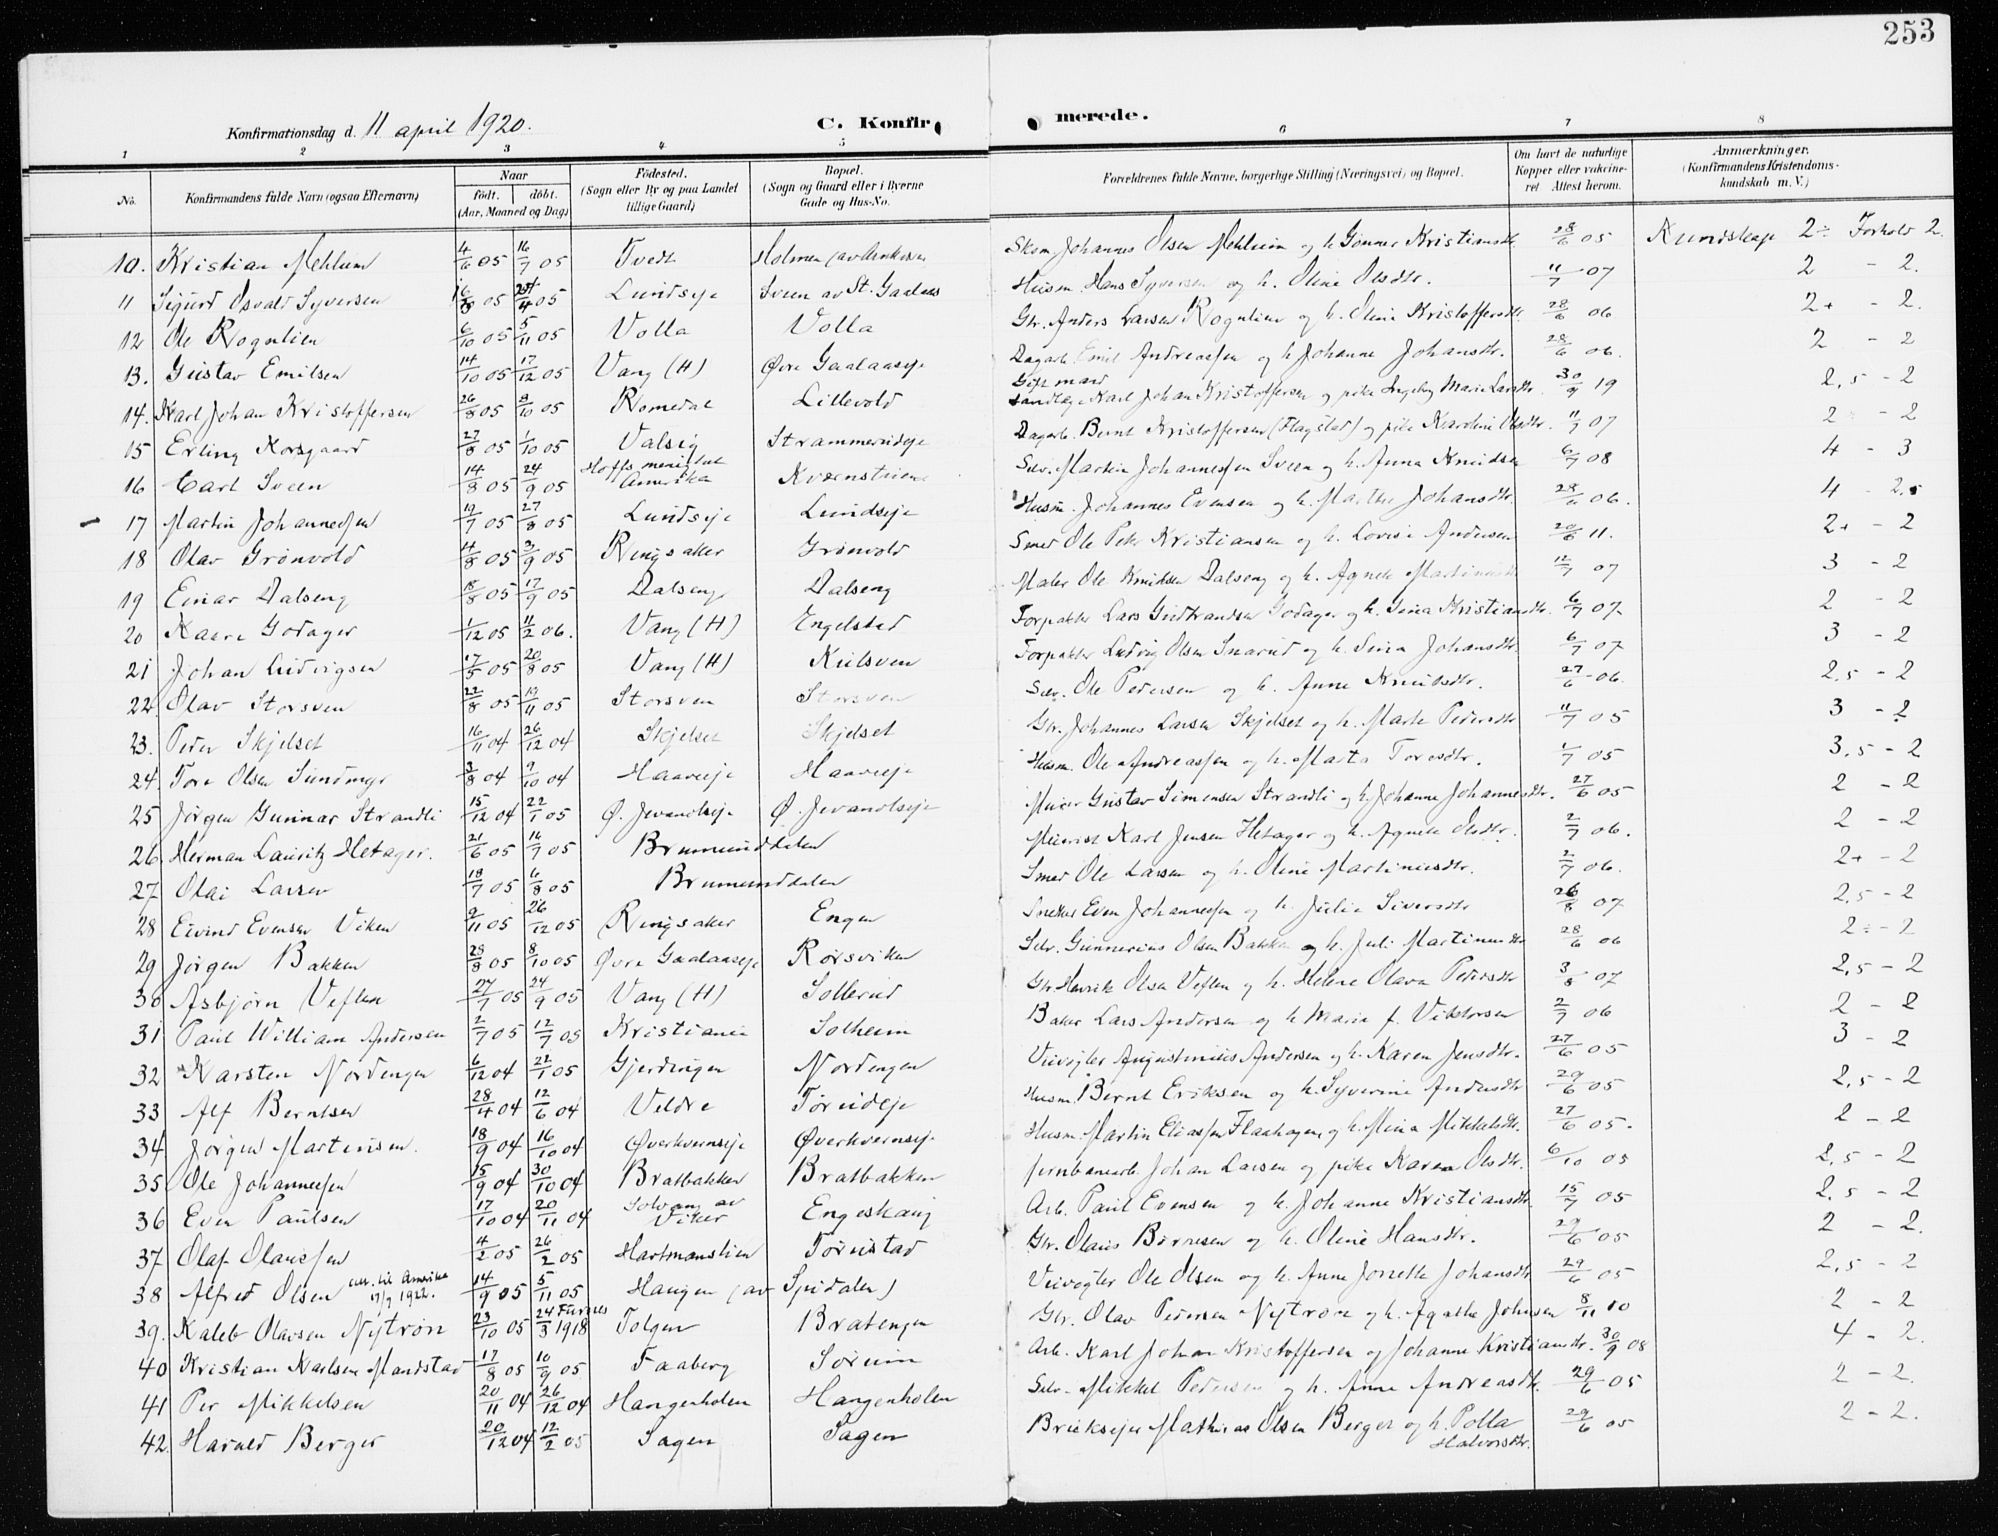 253
Konfirmationsdag d. 11 april 1920. C. Konfirmerede.
1 2 3 4. 5 6 7 8
No. Konfirmandens fulde Navn (ogsaa Efternavn) Naar født. døbt. (Aar, Maaned og Dag) Födested. (Sogn eller By og paa Landet tillige Gaard) Bopæl. (Sogn og Gaard eller i Byerne Gade og Hus-No. Forældrenes fulde Navne, borgerlige Stilling (Næringsvei) og Bopæl. Om havt de naturlige Kopper eller vakcineret Attest herom. Anmærkninger. (Konfirmandens Kristendomskundskab m. V.)
10. Kristian Mehlum 4/6 05 16/7 05 Tvedt Holmen Skom. Johannes Olsen Mehlum og h. Gunner Kristiansdtr. 28/6 05 Kundskap 2÷ Forhold 2.
11 Sigurd Osvald Syversen 16/3 05 05 Lundseje Sveen av St. Gaalaas Husm. Hans Syversen og h. Oline Olsdtr. 11/7 07 2 - 2.
12 Ole Rognlien 6/10 05 5/11 05 Volla Volla Gbr. Anders Larsen Rognlien og h. Oline Kristoffersdtr. 28/6 06 2+ - 2.
13. Gustav Emilsen 14/10 05 17/12 05 Vang (H) Øvre Gaalaaseje Dagarb. Emil Andreassen og h. Johanne Johansdtr. 28/6 06. 2 - 2
14. Karl Johan Kristoffersen 26/8 05 8/10 05 Romedal Lillevold Gift mand Karl Johan Kristoffersen og pike Ingeborg Marie Larsdtr. 30/9 19 2,5 - 2
15 Erling Korsgaard 27/8 05 1/10 05 Valsig Strammerudeje Dagarb. Bernt Kristoffersen (Flagstad) og pike Karoline Olsdtr. 11/7 07 2 - 2
16 Carl Sveen 14/8 05 24/9 05 Hoffs menighet Amerika Kvænstuen Selv. Martin Johannessen Sveen og h. Anna Knudsen 6/7 08 4 - 3
17 Martin Johannessen 19/7 05 27/8 05 Lundseje Lundseje Husm. Johannes Evensen og h. Marthe Johansdtr. 28/6 06. 4 - 2,5
18 Olav Grønvold 4/8 05 3/9 05 Ringsaker Grønvold Smed Ole Peter Kristiansen og h. Lovise Andersen 20/6 11. 2+ - 2
19 Einar Dalseng 18/8 05 17/9 05 Dalseng Dalseng Maler Ole Knudsen Dalseng og h. Agnete Martinusdtr. 12/7 07 3 - 2
20 Kaare Godager 1/12 05 11/2 06. Vang (H) Engelstad Forpakter Lars Gudbrandsen Godager og h. Gina Kristiansdtr. 6/7 07. 2 - 2
21 Johan Ludvigsen 17/5 05 20/8 05 Vang (H) Kielsven Forpakter Ludvig Olsen Snarud og h. Sina Johansdtr. 6/7 07 3 - 2
22. Olav Storsven 22/8 05 19/11 05 Storsven Storsven Selv. Ole Pedersen og h. Anne Knudsdtr. 27/6 06. 2,5 - 2
23. Peder Skjelset 16/11 04 26/12 04 Skjelset Skjelset Gbr. Johannes Larsen Skjelset og h. Marte Pedersdtr 11/7 05 3 - 2
24. Tore Olsen Sundmyr 3/8 04 9/10 04 Haaveeje Haaveeje Husm. Ole Andreassen og h. Marta Toresdtr. 1/7 05 3,5 - 2
25 Jørgen Gunnar Strandli 15/12 04 22/1 05 Ø. Jevanolseje Ø. Jevanolseje Murer Gustav Simensen Strandli og h. Johanne Johannesdtr. 27/6 05 2 - 2
26. Herman Lauritz Hetager. 21/6 05 16/7 05 Brumunddalen Meierist Karl Jensen Hetager og h. Agnete Olsdtr. 2/7 06. 2 - 2
27 Olai Larsen 18/7 05 6/8 05 Brumunddalen Smed Ole Larsen og h. Oline Martiniusdtr. 2/7 06. 2+ - 2
28 Eivind Evensen Viken 2/11 05 26/12 05 Ringsaker Engen Snekker Even Johannessen og h. Julie Siversdtr 26/8 07 2,5 - 2
29 Jørgen Bakken 28/8 05 8/10 05 Øvre Gaalaaseje Rørsviken Selv. Gunnerius Olsen Bakken og h. Juli Martinusdtr 28/6 06 2÷ - 2
30 Asbjørn Veflen 27/7 05 24/9 05 Vang (H) Sollerud Gbr. Henrik Olsen Veflen og h. Helene Olava Pedersdtr 3/8 07 2,5 - 2
31 Paul William Andersen 2/7 05 12/7 05 Kristiania Solheim Baker Lars Andersen og h. Marie f. Viktorsen 2/7 06 2 - 2
32 Karsten Nordengen 6/12 04 22/1 05 Gjerdingen Nordengen Veivogter Augustinius Andersen og h. Karen Jensdtr. 27/6 05 3 - 2
33 Alf Berntsen 28/4 04 12/6 04 Veldre Tørudeje Husm. Bernt Eriksen og h. Syverine Andersdtr 29/6 05 2,5 - 2
34 Jørgen Martinsen. 18/9 04 16/10 04 Øverkvernseje Øverkvernseje Husm. Martin Eliassen Flaahagen og h. Mina Mikkelsdtr. 27/6 05. 2 - 2
35 Ole Johannessen 15/9 04 30/10 04 Bratbakken Bratbakken Jernbanearb. Johan Larsen og pike Karen Olsdtr. 6/10 05 2,5 - 2
36 Even Paulsen 17/10 04 20/11 04 Solvang av Viker Engeskaug Arb. Paul Evensen og h. Johanne Kristiansdtr. 15/7 05 2,5 - 2
37 Olaf Olaussen 4/2 05 26/2 05 Hartmanstuen Tørudstad Gbr. Olaus Børresen og h. Oline Hansdtr. 29/6 05 2 - 2.
38 Alfred Olsen utt. til Amerika 17/7 1922. 14/9 05 5/11 05 Haugen (av Spidalen) Veivogter Ole Olsen og h. Anne Jonette Johansdtr 29/6 05 2,5 - 2
39. Kaleb Olavsen Nytrøn 23/10 05 24/3 1918 Furnes Tolgen Bratengen Gbr. Olav Pedersen Nytrøn og h. Agathe Johnsen 8/11 10 2 - 2
40 Kristian Karlsen Mandstad 17/8 05 10/9 05 Faaberg Sørum Arb. Karl Johan Kristoffersen og Johanne Kristiansdtr. 30/9 08 4 - 2.
41 Per Mikkelsen 20/11 04 26/12 04 Haugenholen Haugenholen Selv. Mikkel Pedersen og h. Anne Andreasdtr. 29/6 05 2 - 2.
42. Harald Berger 20/12 04 12/2 05 Sagen Sagen Bruksejer Mathias Olsen Berger og h. Polla Halvorsdtr. 29/6 05 2 - 2.